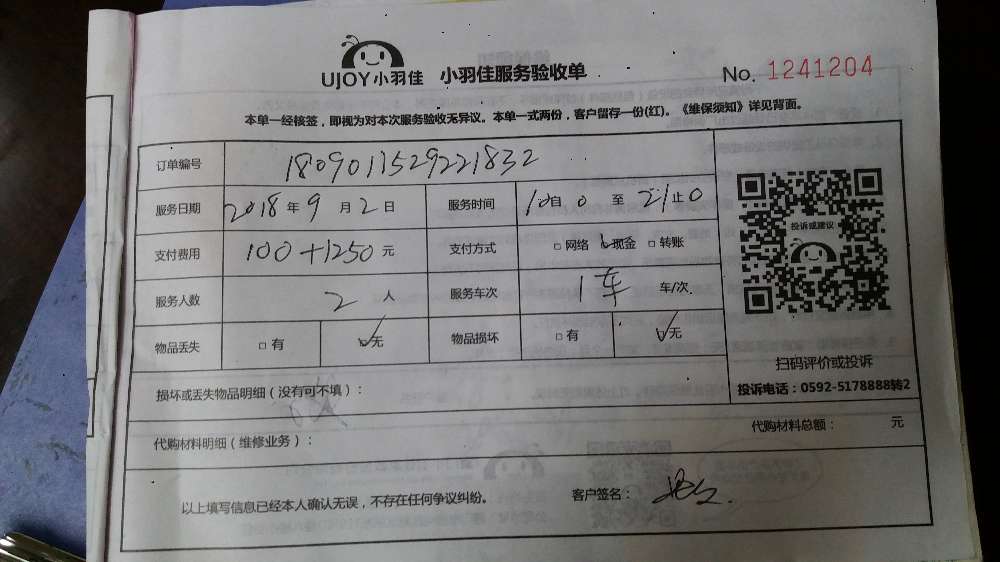 UJOY小羽佳 小羽佳服务验收单 No. 1241204
本单一经核签，即视为对本次服务验收无异议。本单一式两份，客户留存一份(红)。《维保须知》详见背面。
订单编号 180901152922 1832
服务日期 2018年9月2日 服务时间 自 0 至 21止0
支付费用 100+1250元 支付方式 □网络 □现金 □转账
服务人数 2人 服务车次 1车 车/次
物品丢失 □有 □无 物品损坏 □有 □无
投诉或建议
扫码评价或投诉
投诉电话：0592-5178888转2
损坏或丢失物品明细（没有可不填）：
代购材料明细（维修业务）： 代购材料总额： 元
以上填写信息已经本人确认无误，不存在任何争议纠纷。 客户签名：